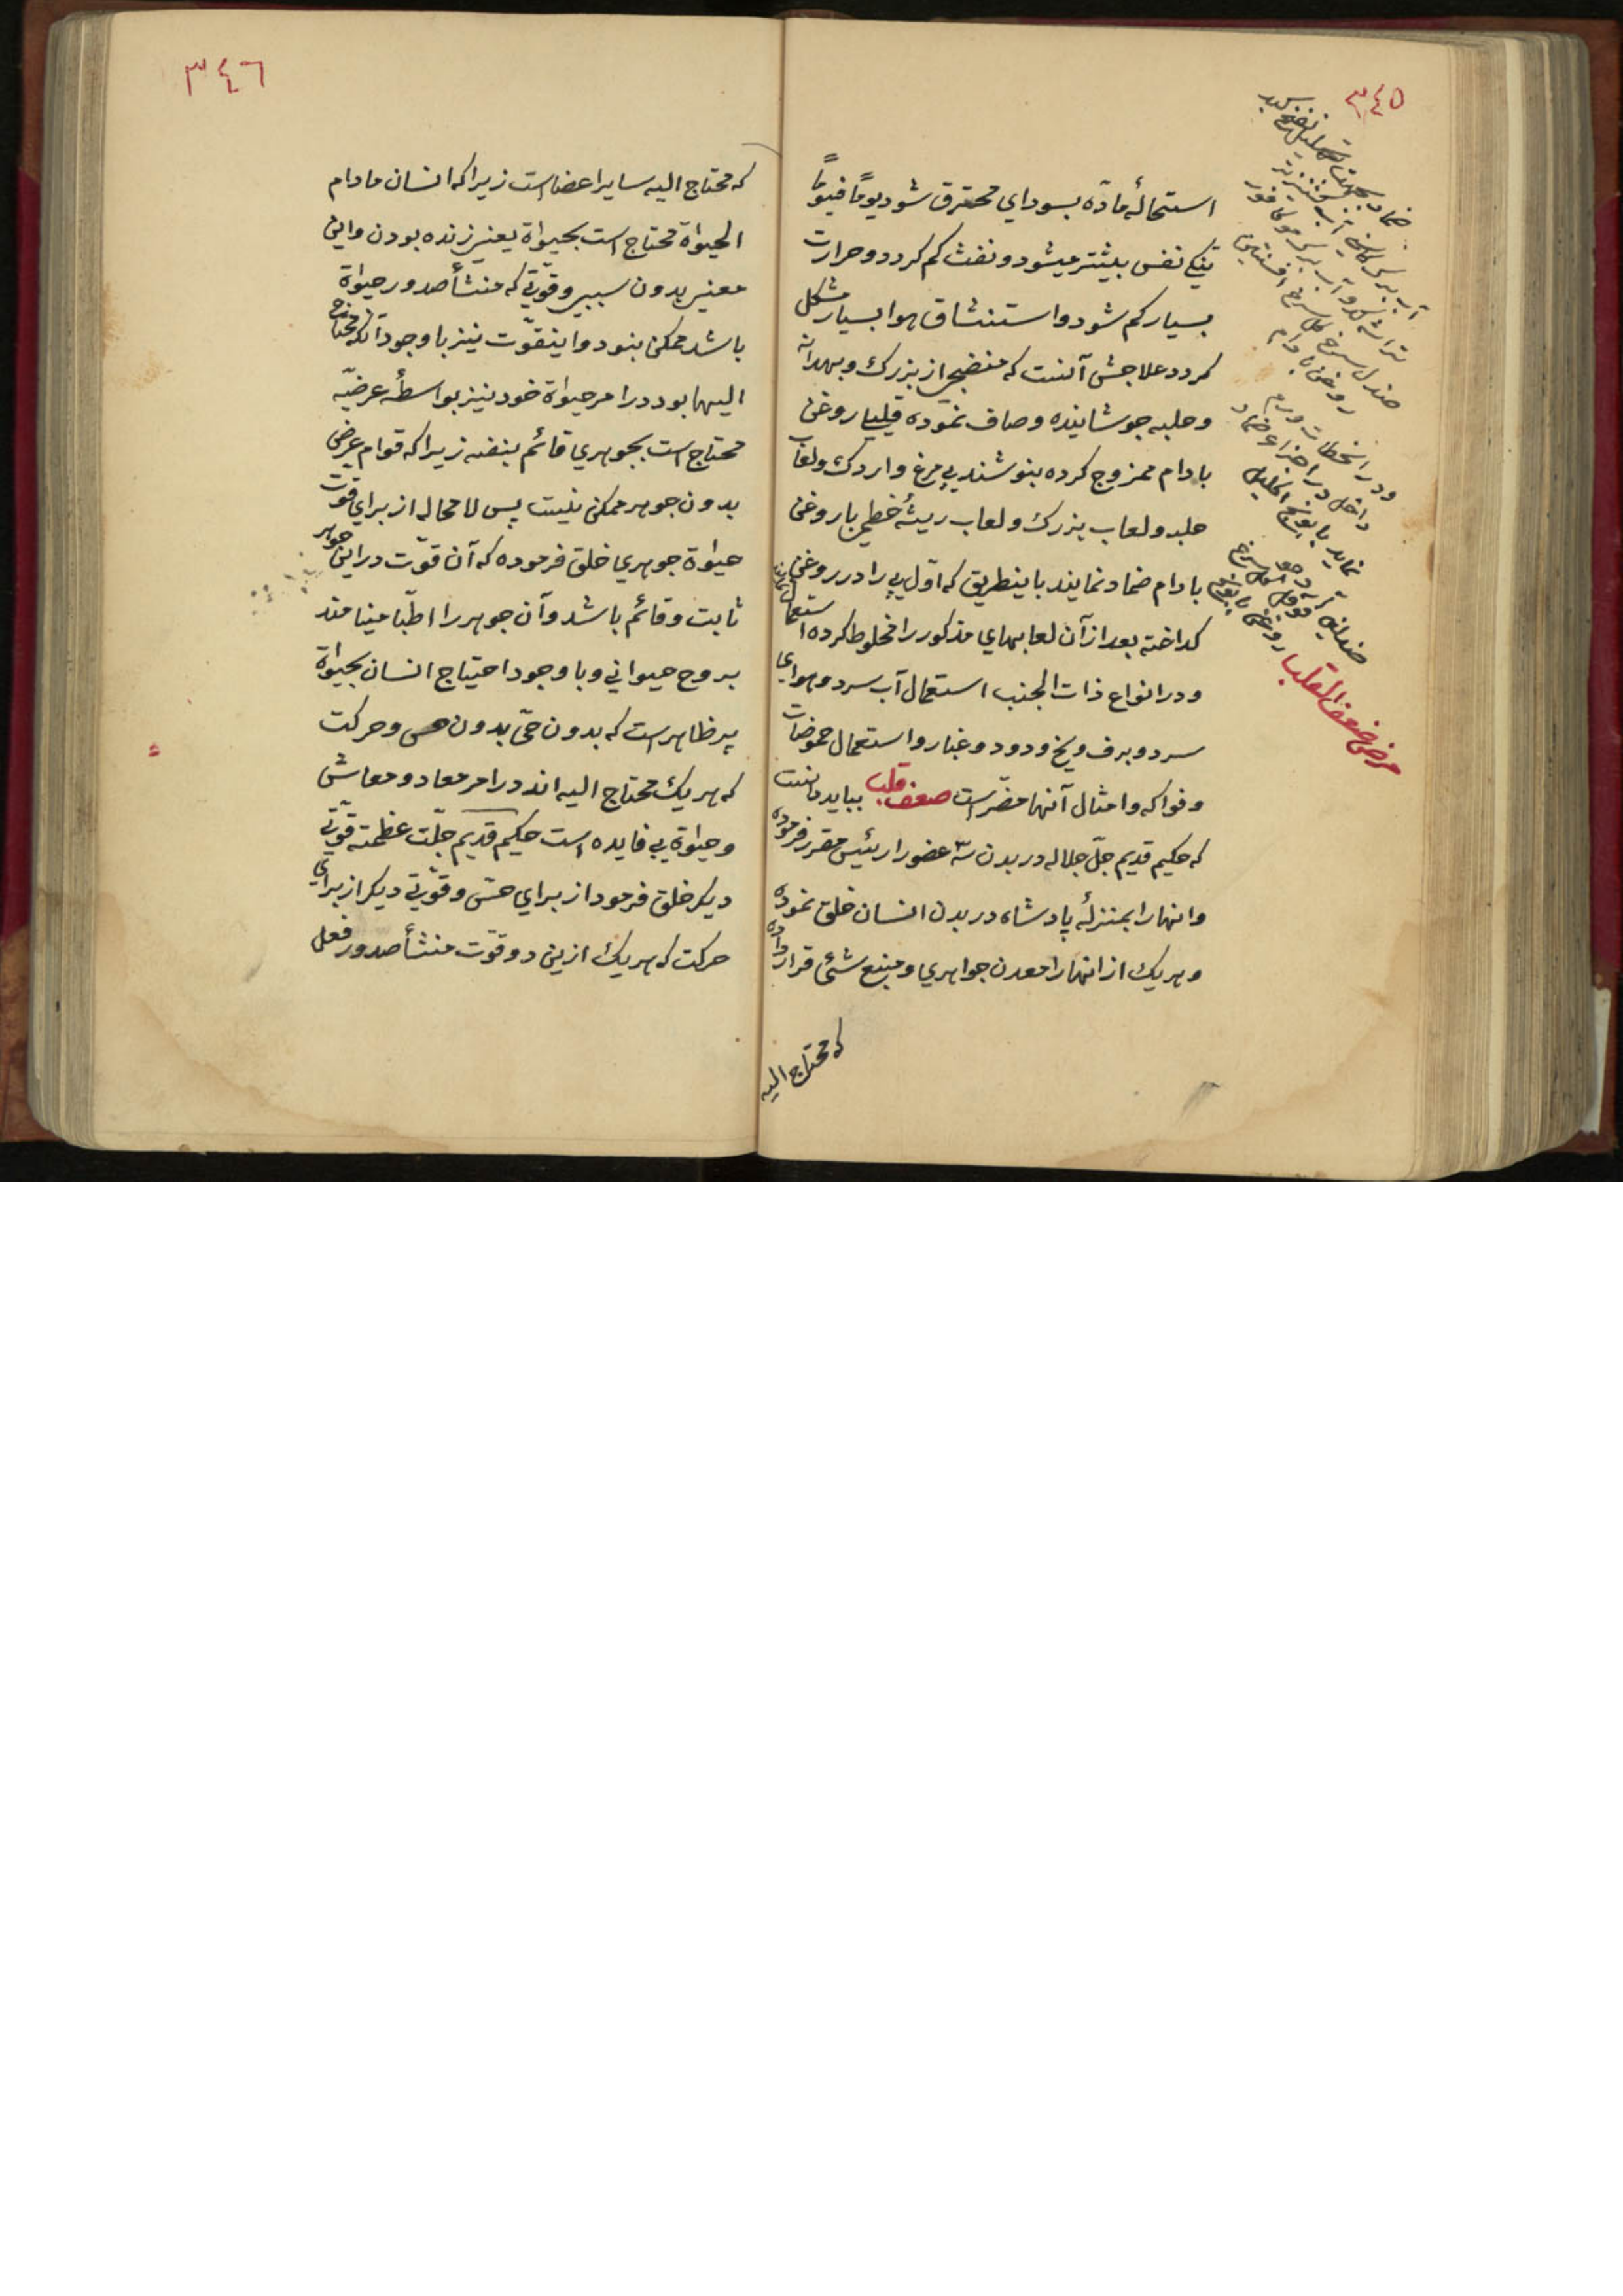 ٣٤٥
استحالهٔ مادّه بسوداي محترق شود يومًا فيومًا
تنكي نفس بيشتر ميشود و نفث كم كردد و حرارت
بسيار كم شود و استنشاق هوا بسيار مشكل
كردد علاجش آنست كه منضجي از بزرك و بهدانه
و حلبه جوشانيده و صاف نموده قليلي روغن
بادام ممزوج كرده بنوشند پي مرغ و اردك و لعاب
حلبه و لعاب بزرك و لعاب ريشهٔ خطمي با روغن
بادام ضماد نمايند باينطريق كه اوّل پي را در روغن
كداخته بعد از آن لعابهاي مذكور را مخلوط كرده استعمال نمايند
و در انواع ذات الجنب استعمال آب سرد و هواي
سرد و برف و يخ و دود و غبار و استعمال حموضات
و فواكه و امثال آنها مضرّ است ضعف قلب ببايد دانست
كه حكيم قديم جلّ جلاله در بدن سه عضو را رئيس مقرر فرموده
و انها را بمنزلهٔ پادشاه در بدن انسان خلق نموده
و هريك از انها را معدن جواهري و منبع شئ قرار داده
كه محتاج اليه
ضماد بجهت
آب برك كاسني آب كشنيز تر
تراشه كدو آب برك كافور
صندل سرخ كل سرخ افسنتين
روغن بادام
و در انحطاط ورم
داخل در اجزاء ضماد
نمايد بابونج اكليل
صندلين فوفل كل سرخ
روغن بابونج
مرض ضعف القلب
٣٤٦
كه محتاج اليه ساير اعضا است زيرا كه انسان مادام
الحيوة محتاج است بحيوة يعني زنده بودن و اين
معني بدون سببي و قوّتي كه منشأ صدور حيوة
باشد ممكن بنود و اينقوّت نيز با وجود آنكه محتاج
اليها بود در امر حيوة خود نيز بواسطهٔ عرضيّه
محتاج است بجوهري قائم بنفسه زيرا كه قوام عرض
بدون جوهر ممكن نيست پس لا محاله از براي قوّت
حيوة جوهري خلق فرموده كه آن قوّت در اين جوهر
ثابت و قائم باشد و آن جوهر را اطبّا مينامند
بروح حيواني و با وجود احتياج انسان بحيوة
پر ظاهر است كه بدون حيّ بدون حس و حركت
كه هريك محتاج اليه اند در امر معاد و معاش
و حيوة بي فايده است حكيم قديم جلّت عظمته قوّتي
ديكر خلق فرمود از براي حسّ و قوّتي ديكر از براي
حركت كه هريك ازين دو قوّت منشأ صدور فعل